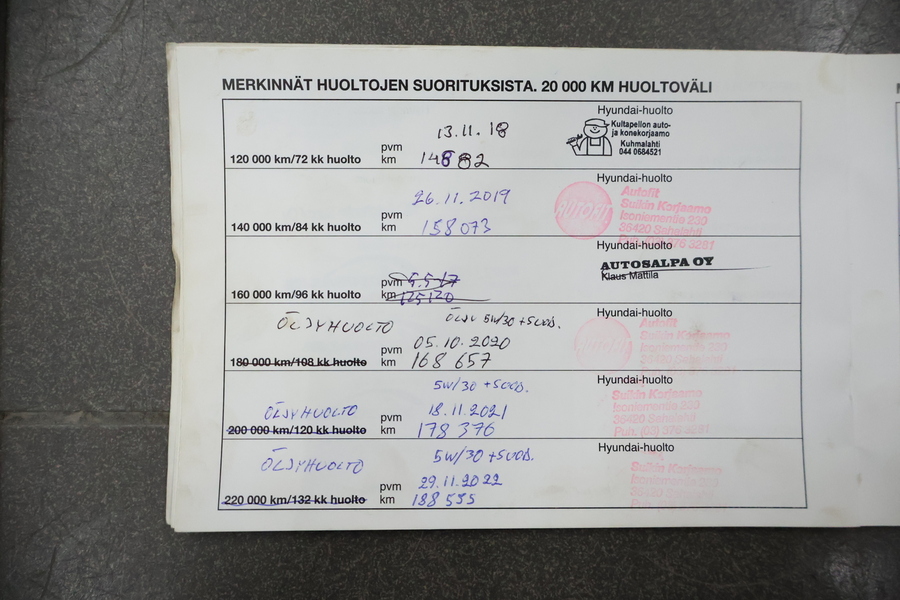 MERKINNÄT HUOLTOJEN SUORITUKSISTA. 20 000 KM HUOLTOVÄLI
Hyundai-huolto
13.11.18
Kultapellon auto-
ja konekorjaamo
Kuhmalahti
044 0684521
pvm
120 000 km/72 kk huolto km 148882
Hyundai-huolto
26.11.2019
AUTOFIT
Autofit
Sulkin Korjaamo
Isoniementie 230
36420 Sahalahti
Puh. (03) 376 3261
pvm
140 000 km/84 kk huolto km 158073
Hyundai-huolto
AUTOSALPA OY
Klaus Mattila
pvm 5.5.17
160 000 km/96 kk huolto km 125120
Hyundai-huolto
ÖLJYHUOLTO ÖLJY 5W/30 +SUOD.
Autofit
Sulkin Korjaamo
Isoniementie 230
pvm 05.10.2020
180 000 km/108 kk huolto km 168 657
Hyundai-huolto
5W/30 +SUOD.
Sulkin Korjaamo
Isoniementie 230
36420 Sahalahti
Puh. (03) 376 3261
ÖLJYHUOLTO pvm 18.11.2021
200 000 km/120 kk huolto km 178 376
Hyundai-huolto
ÖLJYHUOLTO 5W/30 +SUOD.
Sulkin Korjaamo
pvm 29.11.2022
220 000 km/132 kk huolto km 188 535